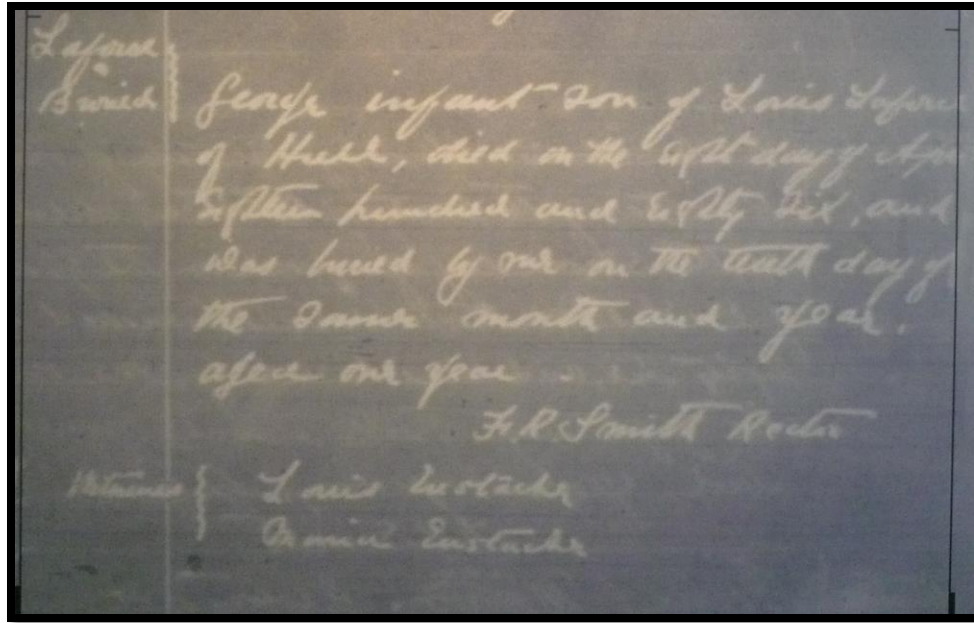 Buried
George infant son of Louis
of Hull, died on the eight day of
eighteen hundred and eighty six, and
was buried by me on the tenth day of
the same month and year.
aged one year.
F. R. Smith Rector
Witnesses
Louis Eustache
Eustache